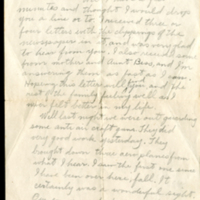 minutes and thought I would drop
you a line or so I received three or
four letters with the clippings of the
messengers in it and was very glad
to hear from you. I also received some
from mother and Aunt Bess, and I'm
answering them as fast as I can.
Hoping this letter will find and the
rest of the family feeling well as I
never felt better in my life.
Well last night we were out guarding
some anti air craft guns they did
very good work yesterday. They
brought down three aeroplanes from
what I hear. I saw the first one since
I have been over here, fall. It
certainly was a wonderful sight.